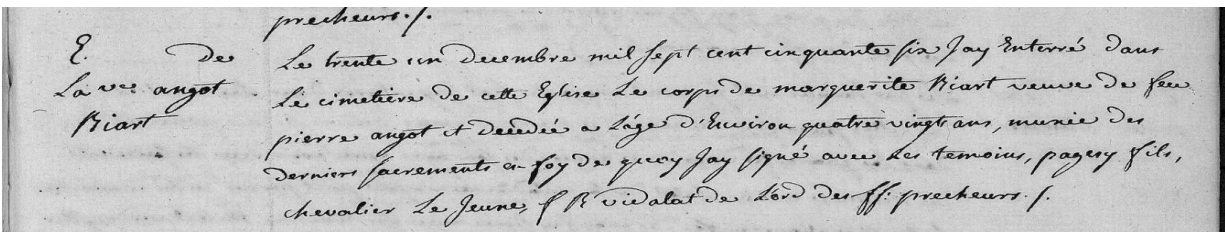 precheurs ./.
E. de
La vve angot
Riart
Le trente un decembre mil sept cent cinquante six Jay Enterré dans
Le cimetière de cette Eglise Le corps de marguerite Riart veuve de feu
pierre angot et decedée a Lâge d'Environ quatre vingt ans, munie des
derniers sacrements en foy de quoy Jay signé avec Les temoins, pagesy fils,
chevalier Le Jeune, f R vidalat de L'ord des ff: precheurs ./.